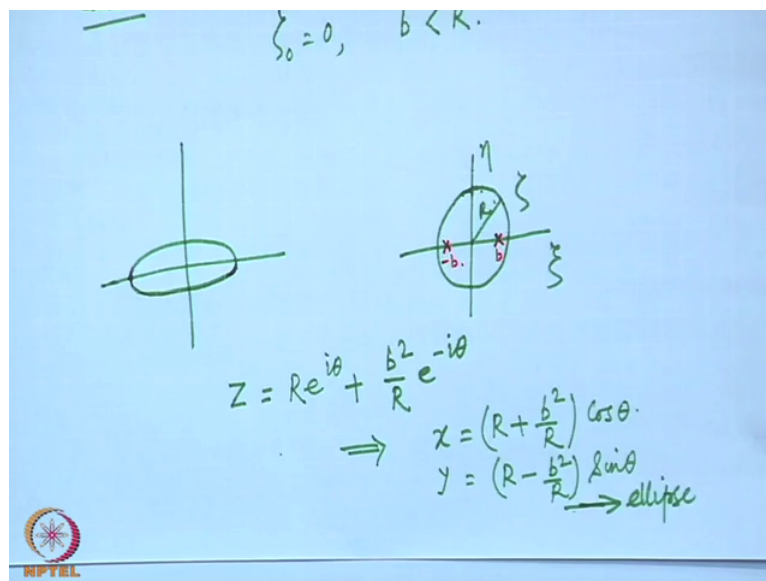 ξ₀ = 0, b < R.
η
R
ζ
-b.
b
ξ
Z = Re^{iθ} + \frac{b^2}{R} e^{-iθ}
⟹ x = (R + \frac{b^2}{R}) cosθ.
y = (R - \frac{b^2}{R}) Sinθ
→ ellipse
NPTEL